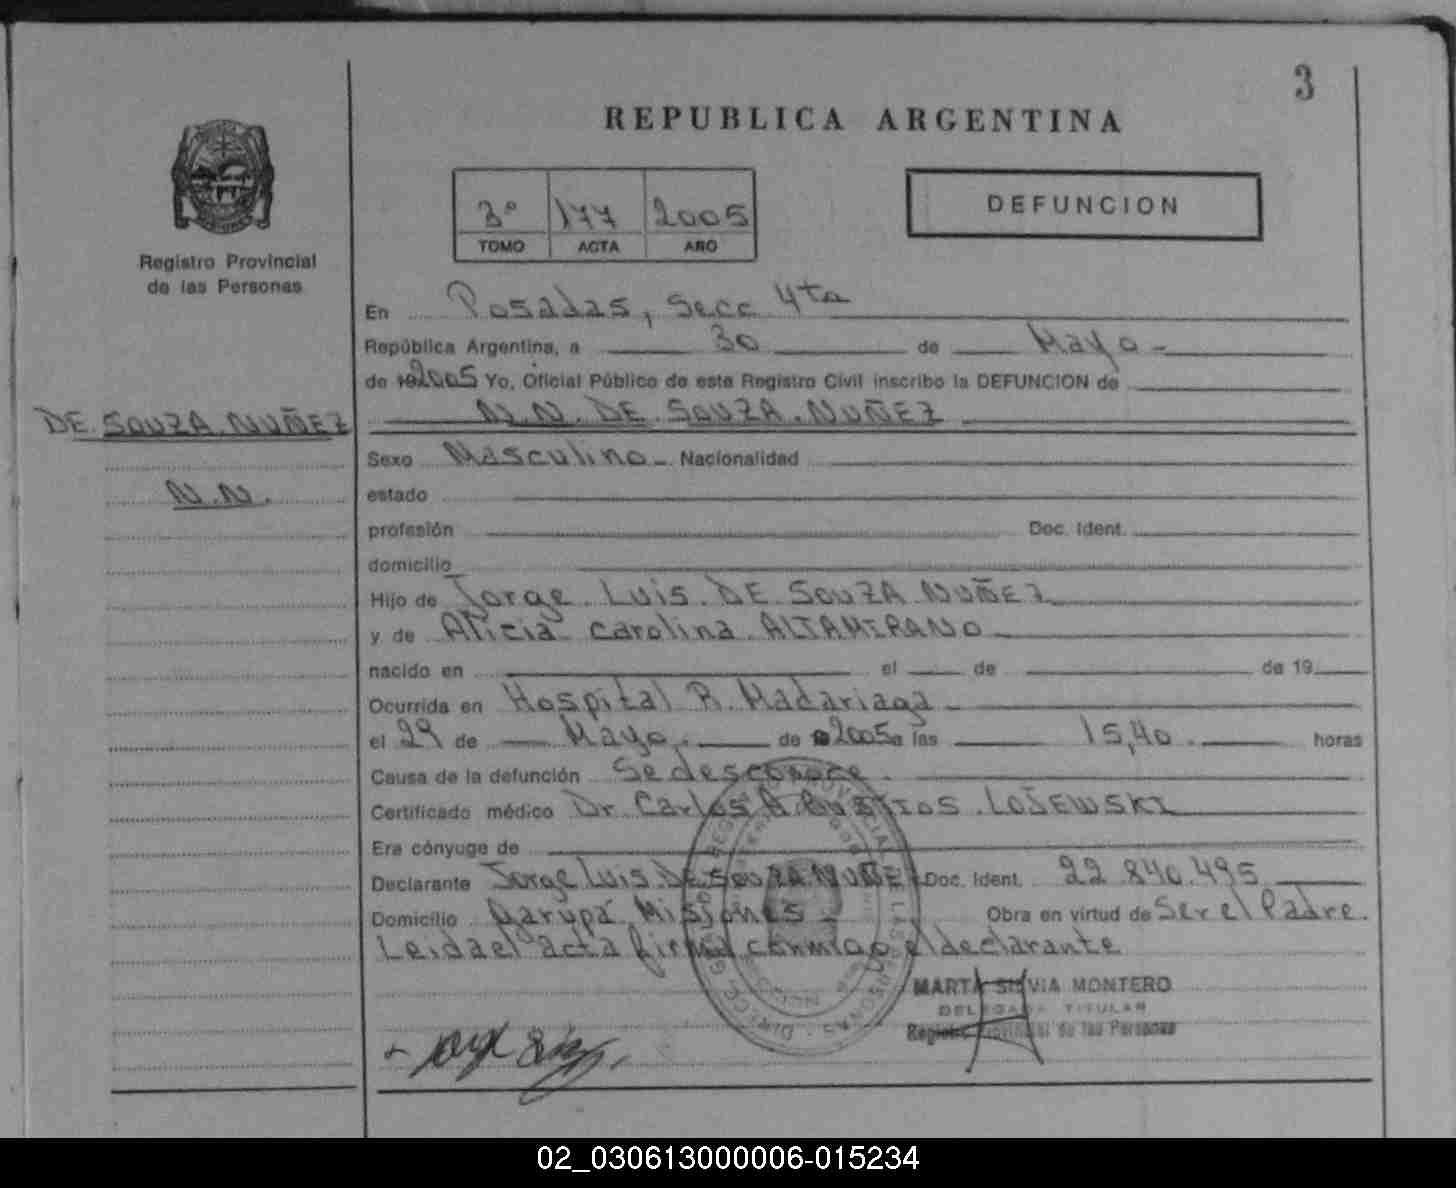 3
REPUBLICA ARGENTINA
3º 177 2005
TOMO ACTA AÑO
DEFUNCION
Registro Provincial
de las Personas
En Posadas, Secc 4ta
República Argentina, a 30 de Mayo-
de 192005 Yo, Oficial Público de este Registro Civil inscribo la DEFUNCION de
DE SOUZA NUÑEZ
N.N. DE SOUZA NUÑEZ
Sexo Masculino- Nacionalidad
N.N.
estado
profesión Doc. Ident.
domicilio
Hijo de Jorge Luis DE SOUZA NUÑEZ
y de Alicia Carolina ALTAMIRANO
nacido en el de de 19
Ocurrida en Hospital R. Madariaga-
el 29 de Mayo de 2005 a las 15,40 horas
Causa de la defunción Se desconoce.
Certificado médico Dr. Carlos A. LOSEWSKI
Era cónyuge de
Declarante Jorge Luis DE SOUZA NUÑEZ Doc. Ident. 22.840.495
Domicilio Garupá Misiones Obra en virtud de Ser el Padre.
Leida el acta firma conmigo el declarante
MARTA SILVIA MONTERO
DELEGADA TITULAR
Registro Provincial de las Personas
02_030613000006-015234